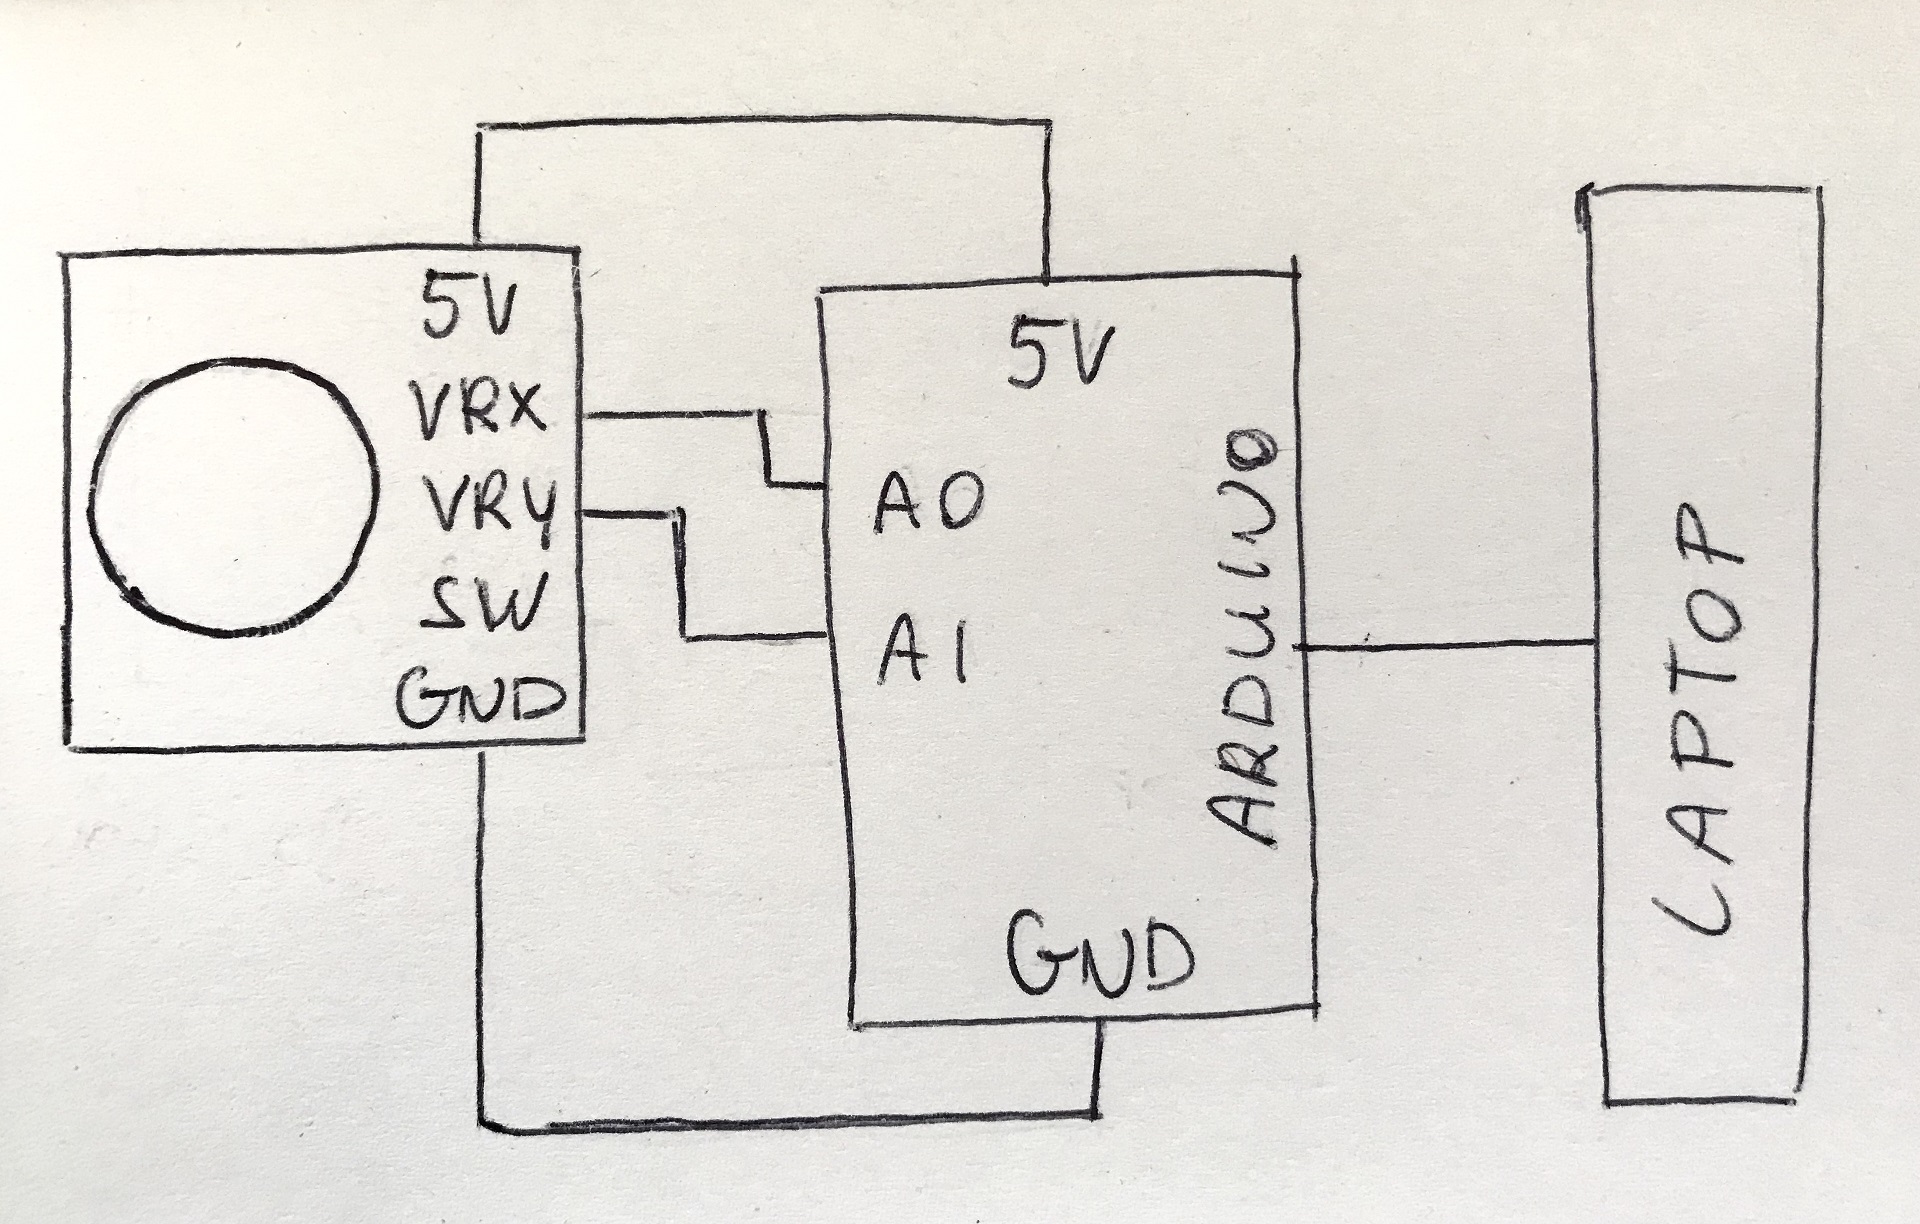 5V
VRX
VRY
SW
GND
5V
A0
A1
GND
ARDUINO
LAPTOP